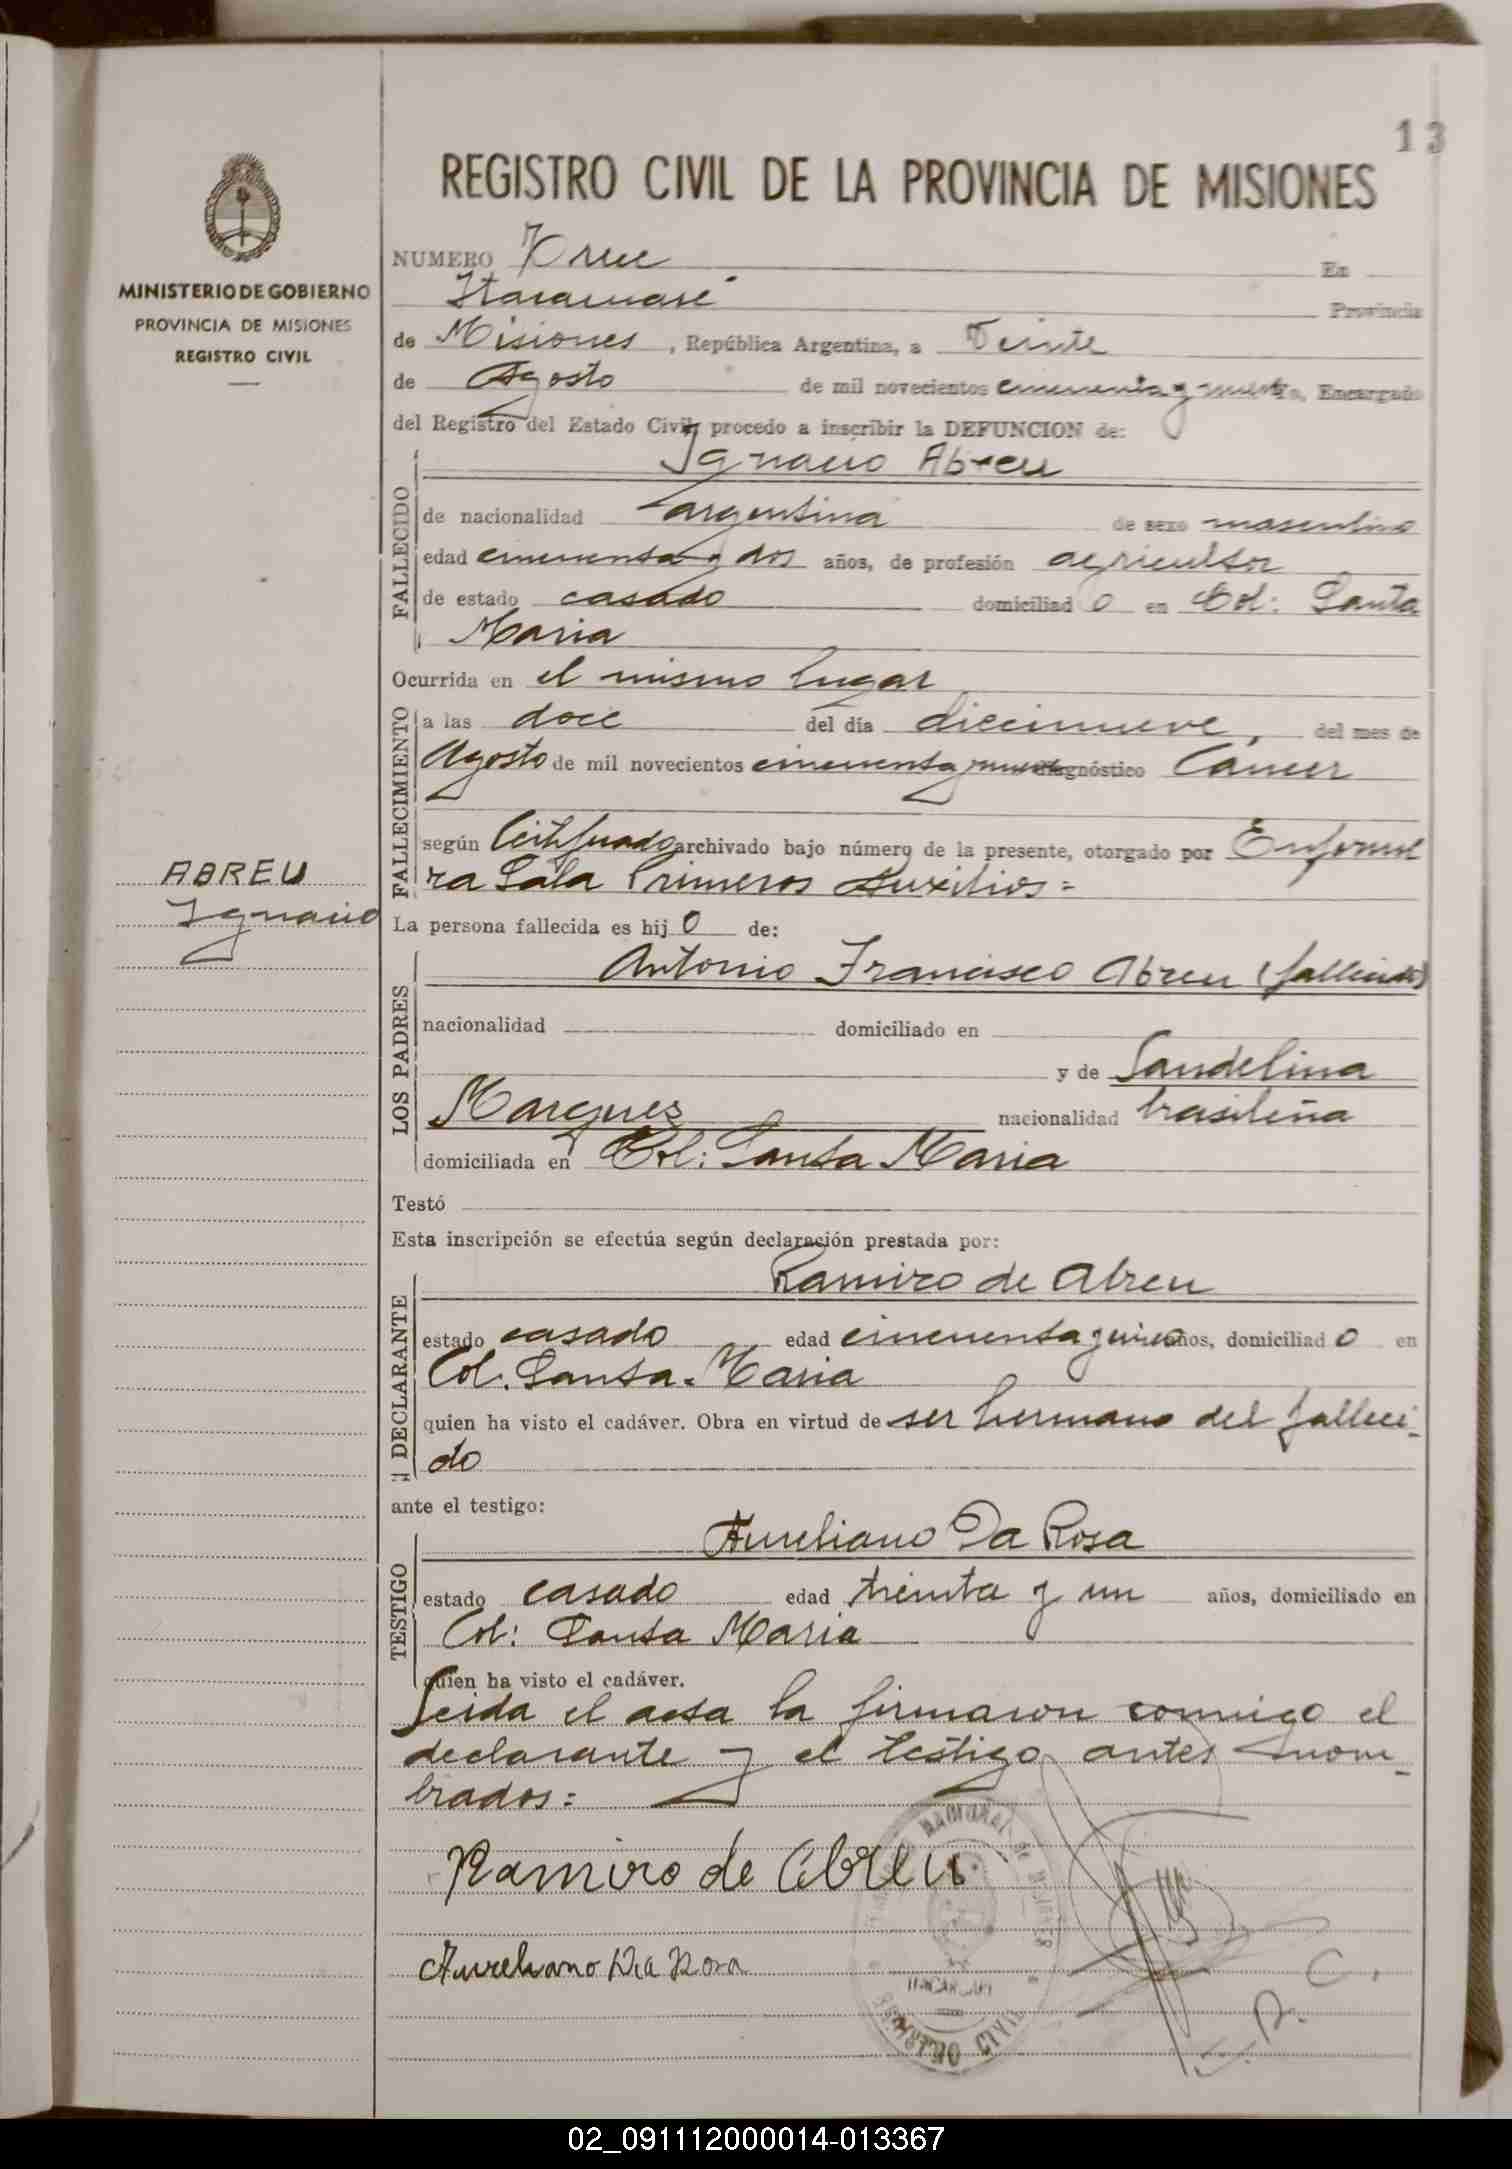 13
REGISTRO CIVIL DE LA PROVINCIA DE MISIONES
MINISTERIO DE GOBIERNO
PROVINCIA DE MISIONES
REGISTRO CIVIL
NUMERO Trece En
Itacaruaré Provincia
de Misiones, República Argentina, a Veinte
de Agosto de mil novecientos cincuenta y nueve, Encargado
del Registro del Estado Civil, procedo a inscribir la DEFUNCION de:
Ignacio Abreu
FALLECIDO
de nacionalidad argentina de sexo masculino
edad cincuenta y dos años, de profesión agricultor
de estado casado domiciliad o en Col: Santa
Maria
Ocurrida en el mismo lugar
FALLECIMIENTO
a las doce del día diecinueve, del mes de
Agosto de mil novecientos cincuenta y nueve diagnóstico Cancer
según Certificado archivado bajo número de la presente, otorgado por Enferme
ra Sala Primeros Auxilios=
ABREU
Ignacio
La persona fallecida es hij o de:
LOS PADRES
Antonio Francisco Abreu (fallecido)
nacionalidad domiciliado en
y de Landelina
Marques nacionalidad brasileña
domiciliada en Col: Santa Maria
Testó
Esta inscripción se efectúa según declaración prestada por:
DECLARANTE
Ramiro de Abreu
estado casado edad cincuenta y cinco años, domiciliad o en
Col. Santa Maria
quien ha visto el cadáver. Obra en virtud de ser hermano del falleci-
do
ante el testigo:
TESTIGO
Aureliano Da Rosa
estado casado edad treinta y un años, domiciliado en
Col: Santa Maria
quien ha visto el cadáver.
Leida el acta la firmaron conmigo el
declarante y el testigo antes nom-
brados=
Ramiro de Abreu
Aureliano Da Rosa
REGISTRO CIVIL
02_091112000014-013367